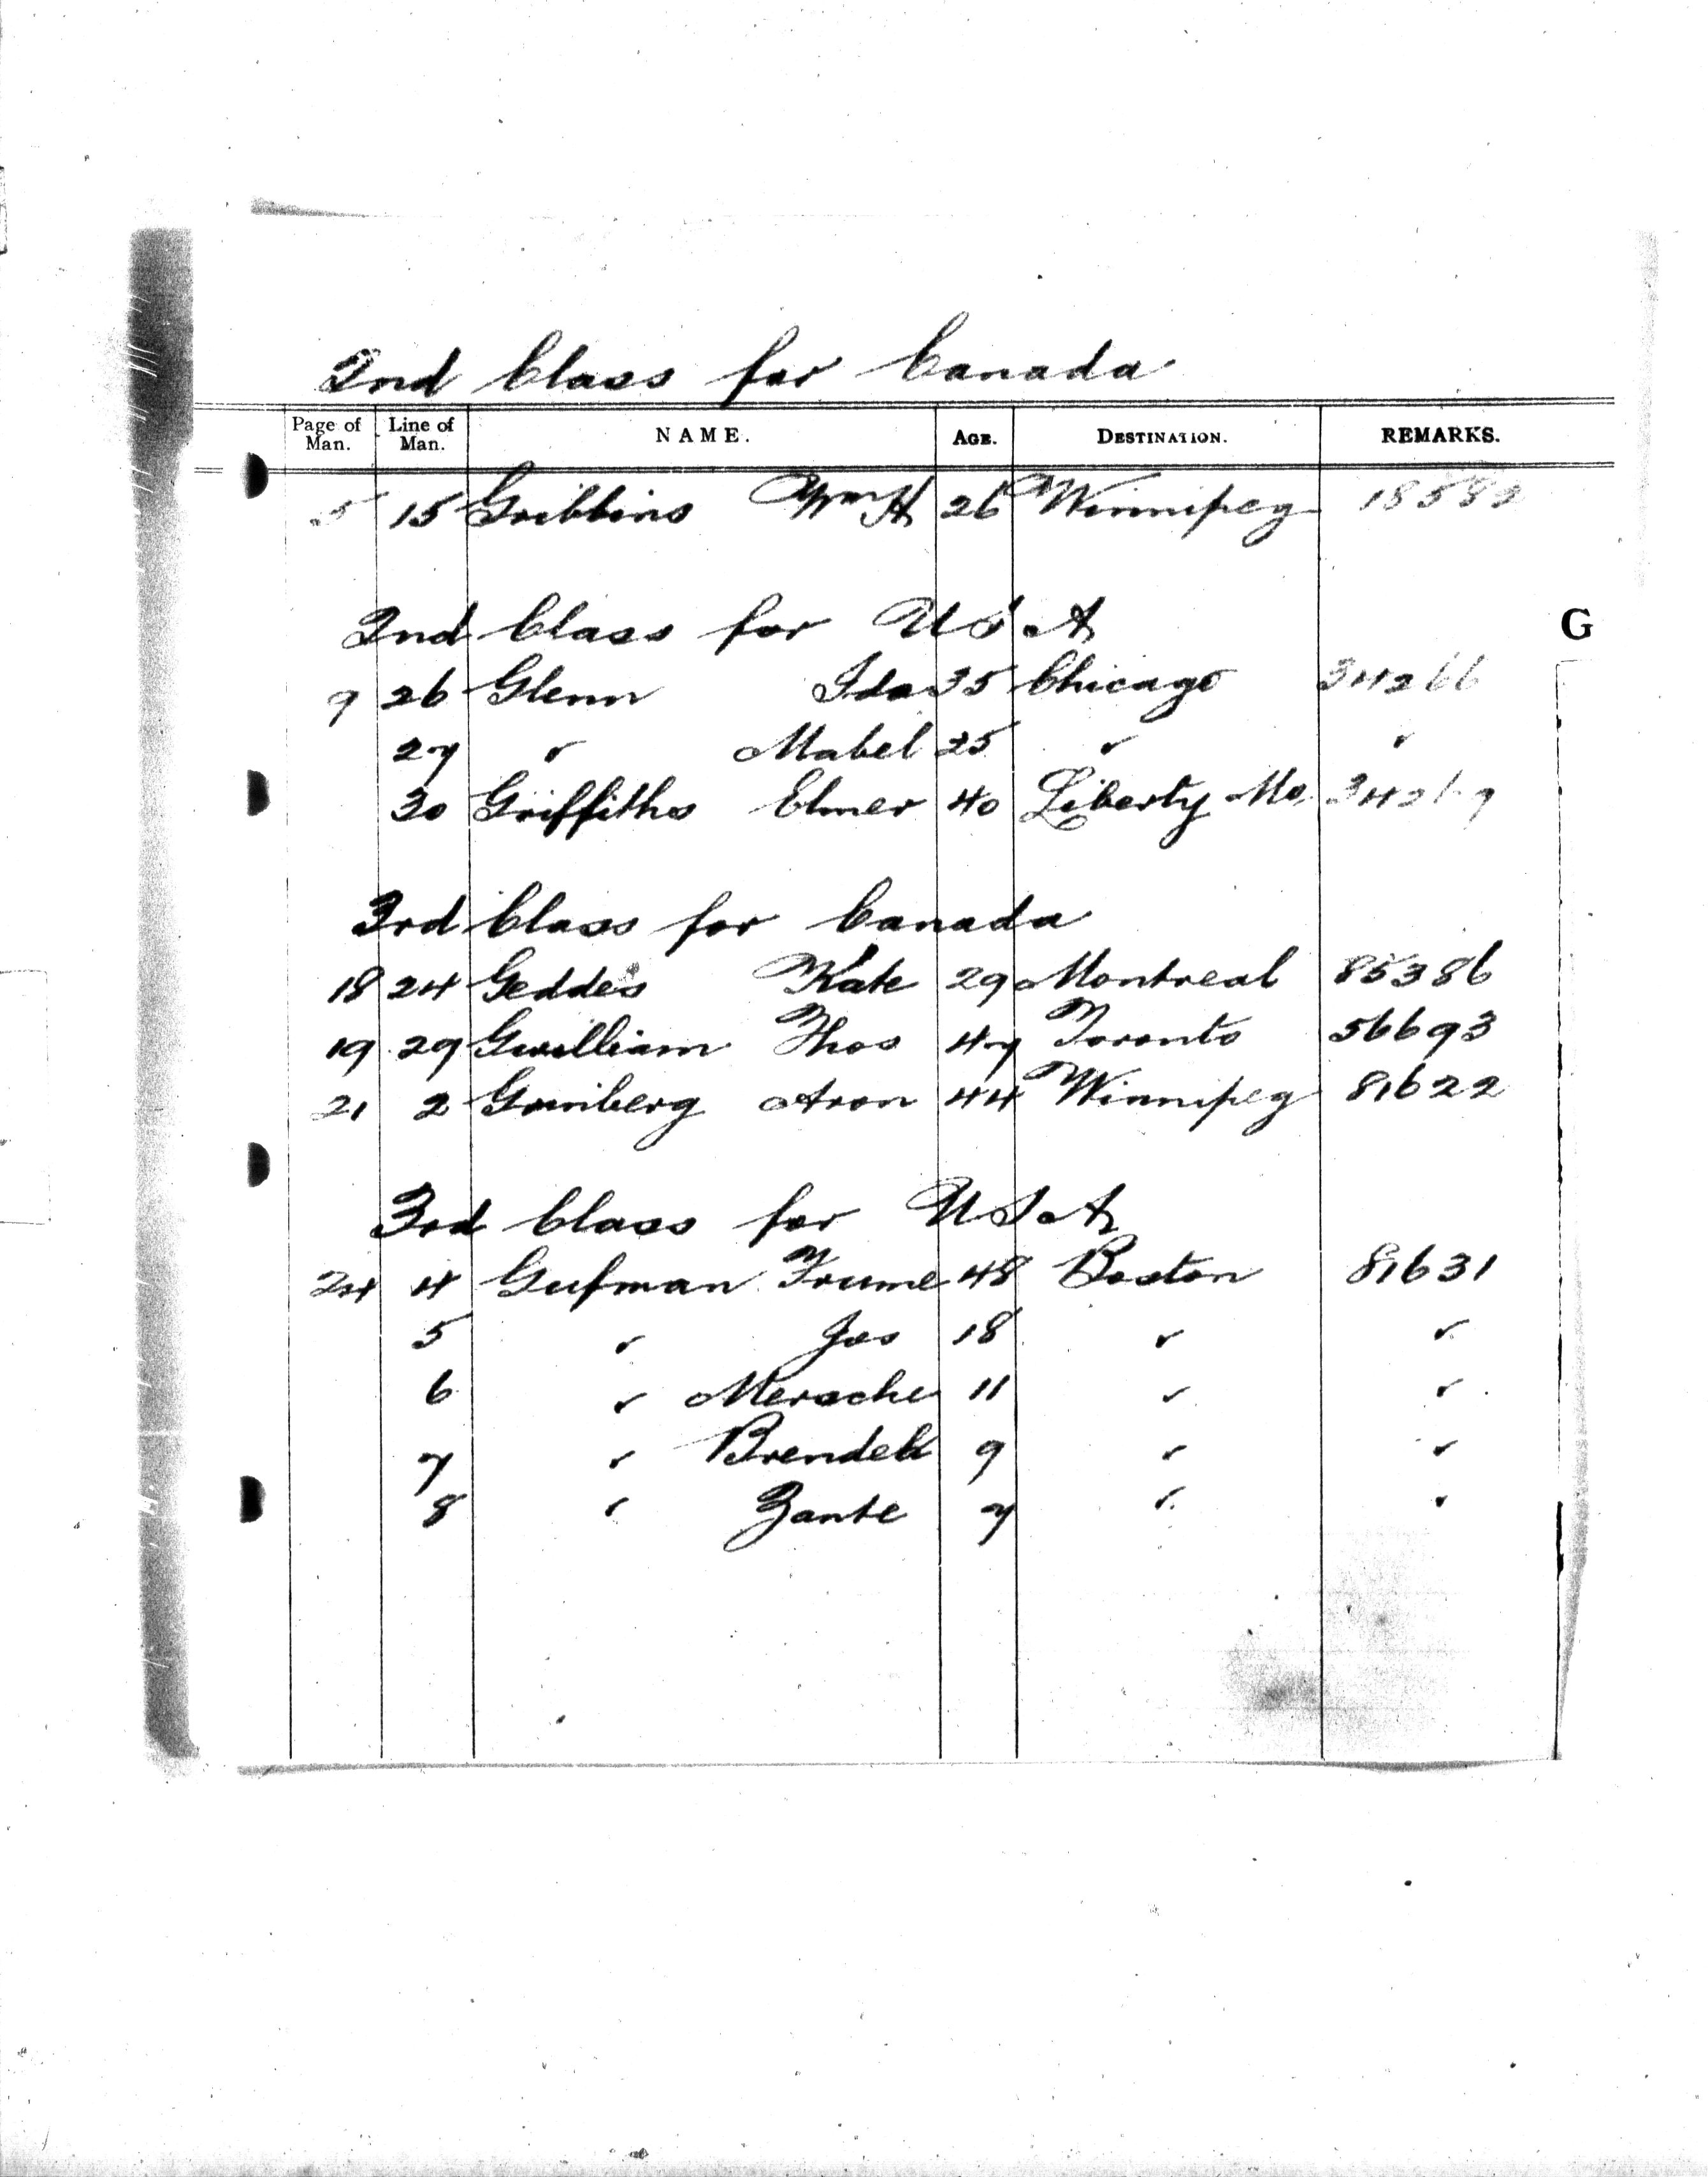 2nd Class for Canada
Page of Man. Line of Man. NAME. AGE. DESTINATION. REMARKS.
5 15 Gribbins Wm H 26 Winnipeg 18582
2nd Class for U S A
G
9 26 Glenn Ida 35 Chicago 34266
27 " Mabel 25 " "
30 Griffiths Elmer 40 Liberty Mo. 34269
3rd Class for Canada
18 24 Geddes Kate 29 Montreal 85386
19 29 Gwilliam Thos 47 Toronto 56693
21 2 Grinberg Aron 44 Winnipeg 81622
3rd Class for U S A
24 4 Gufman Frume 48 Boston 81631
5 " Jos 18 " "
6 " Mersche 11 " "
7 " 9 " "
8 " Zante 7 " "